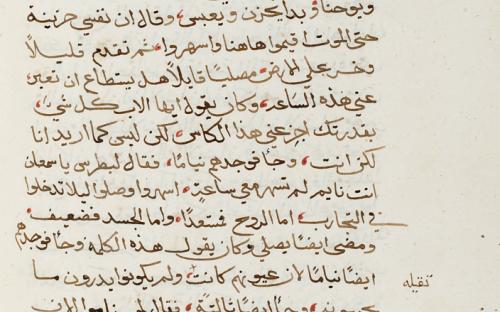 ويوحنا وبدا يحزن ويعبس وقال ان نفسي حزينة
حتى الموت اقيموا هاهنا واسهروا ثم تقدم قليلاً
وخر على الارض مصليًا قايلاً هل يستطاع ان تعبر
عني هذه الساعه وكان يقول ايها الاب كل شي
بقدرتك اجز عني هذا الكاس لكن ليس كما اريد انا
لكن انت وجا فوجدهم نيامًا فقال لبطرس يا سمعان
انت نايم لم تسهر معي ساعة اسهروا وصلوا ليلا تدخلوا
في التجارب اما الروح فمستعدًا واما الجسد فضعيف
ومضى ايضًا يصلي وكان يقول هذه الكلمه وجا فوجدهم
ايضًا نيامًا لان عيونهم كانت ثقيله ولم يكونوا يدرون ما
يجيبونه وجا ايضًا ثالثة فقال لهم ناموا الان